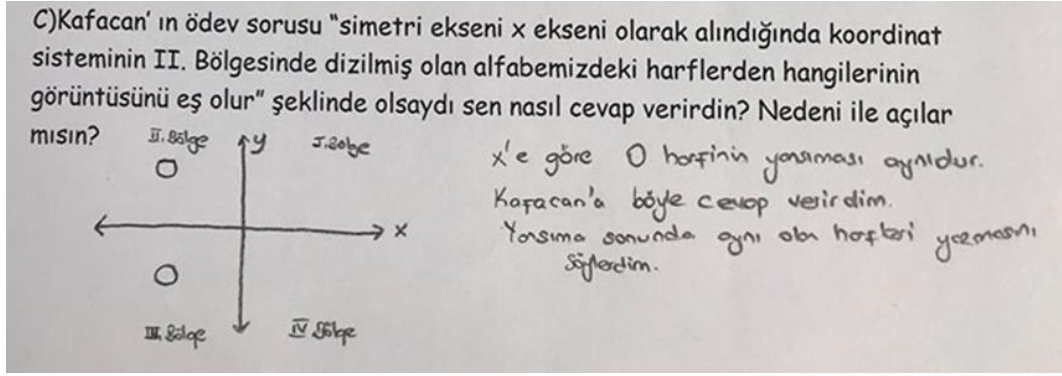 C)Kafacan' ın ödev sorusu "simetri ekseni x ekseni olarak alındığında koordinat
sisteminin II. Bölgesinde dizilmiş olan alfabemizdeki harflerden hangilerinin
görüntüsünü eş olur" şeklinde olsaydı sen nasıl cevap verirdin? Nedeni ile açılar
mısın?
II. Bölge
y
I. Bölge
O
x
O
III. Bölge
IV Bölge
x'e göre O harfinin yansıması aynıdur.
Kafacan'a böyle cevap verirdim.
Yansıma sonunda aynı olan harfleri yazmasını
Söylerdim.